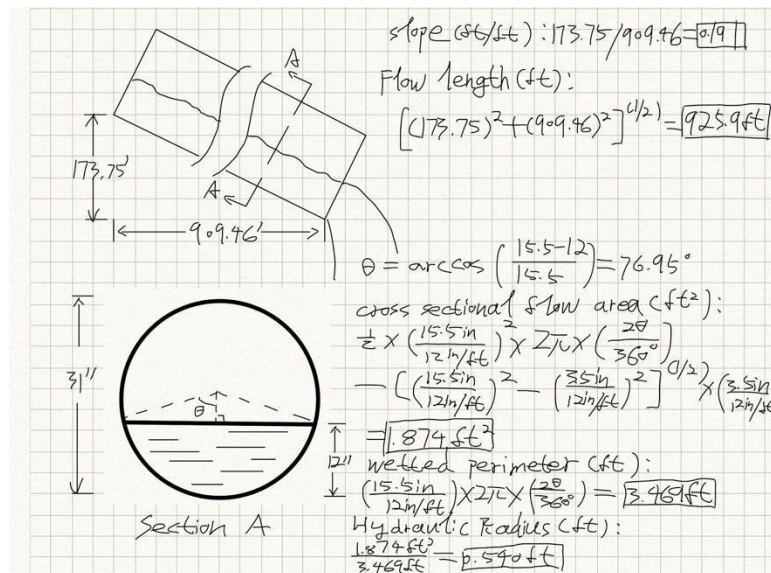 slope (ft/ft) : 173.75/909.46 = 0.191
Flow length (ft) :
[(173.75)² + (909.46)²]^(1/2) = 925.9ft
A
A
173.75'
909.46'
θ = arccos (15.5-12 / 15.5) = 76.95°
cross sectional flow area (ft²) :
1/2 × (15.5in / 12in/ft)² × 2π × (2θ / 360°)
— [(15.5in / 12in/ft)² — (3.5in / 12in/ft)²]^(1/2) × (3.5in / 12in/ft
= 1.874 ft²
wetted perimeter (ft) :
(15.5in / 12in/ft) × 2π × (2θ / 360°) = 3.469ft
Hydraulic Radius (ft) :
1.874ft² / 3.469ft = 0.540ft
31"
θ
12"
Section A